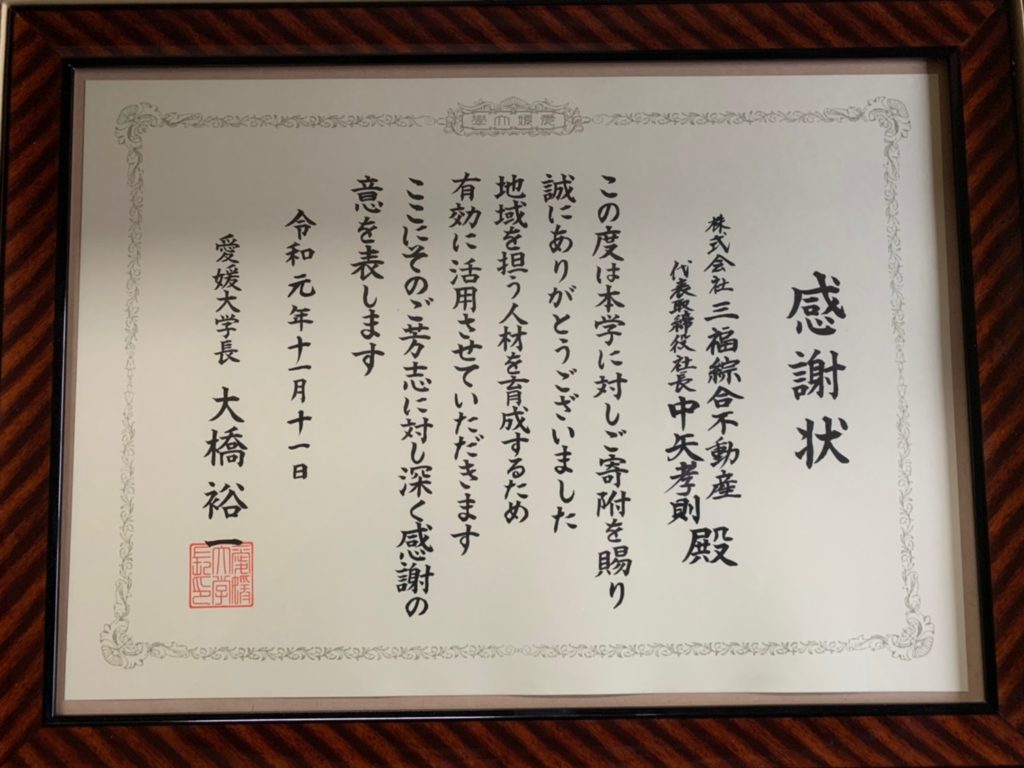 愛媛大学
感謝状
株式会社三福綜合不動産
代表取締役社長中矢孝則殿
この度は本学に対しご寄附を賜り
誠にありがとうございました
地域を担う人材を育成するため
有効に活用させていただきます
ここにそのご芳志に対し深く感謝の
意を表します
令和元年十一月十一日
愛媛大学長 大橋裕一
愛媛大学長印